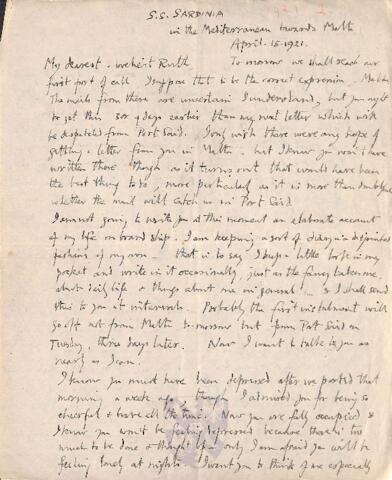 S.S. SARDINIA
in the Mediterranean towards Malta
April. 15. 1921.
My dearest sweetest Ruth To-morrow we shall reach our
first port of call. I suppose that to be the correct expression - Malta.
The mails from there are uncertain I understand, but you ought
to get this 3 or 4 days earlier than my next letter which will
be despatched from Port Said. I only wish there were any hope of
getting a letter from you in Malta, but I know you won't have
written there though as it turns out that would have been
the best thing to do, more particularly as it is more than doubtful
whether the mail will catch us in Port Said
I am not going to write you at this moment an elaborate account
of my life on board ship. I am keeping a sort of diary in disjointed
fashion of my own - that is to say I keep a little book in my
pocket and write in it occasionally, just as the fancy takes me
about daily life & things about me in general & I shall send
this to you at intervals. Probably the first instalment will
go off not from Malta to-morrow but from Port Said on
Tuesday, three days later. Now I want to talk to you as
nearly as I can.
I know you must have been depressed after we parted that
morning a week ago, though I admired you for being so
cheerful & brave all the time. Now you are fully occupied &
I know you won't be feeling depressed because there is too
much to be done & thought of - only I am afraid you will be
feeling lonely at nights. I want you to think of me especially